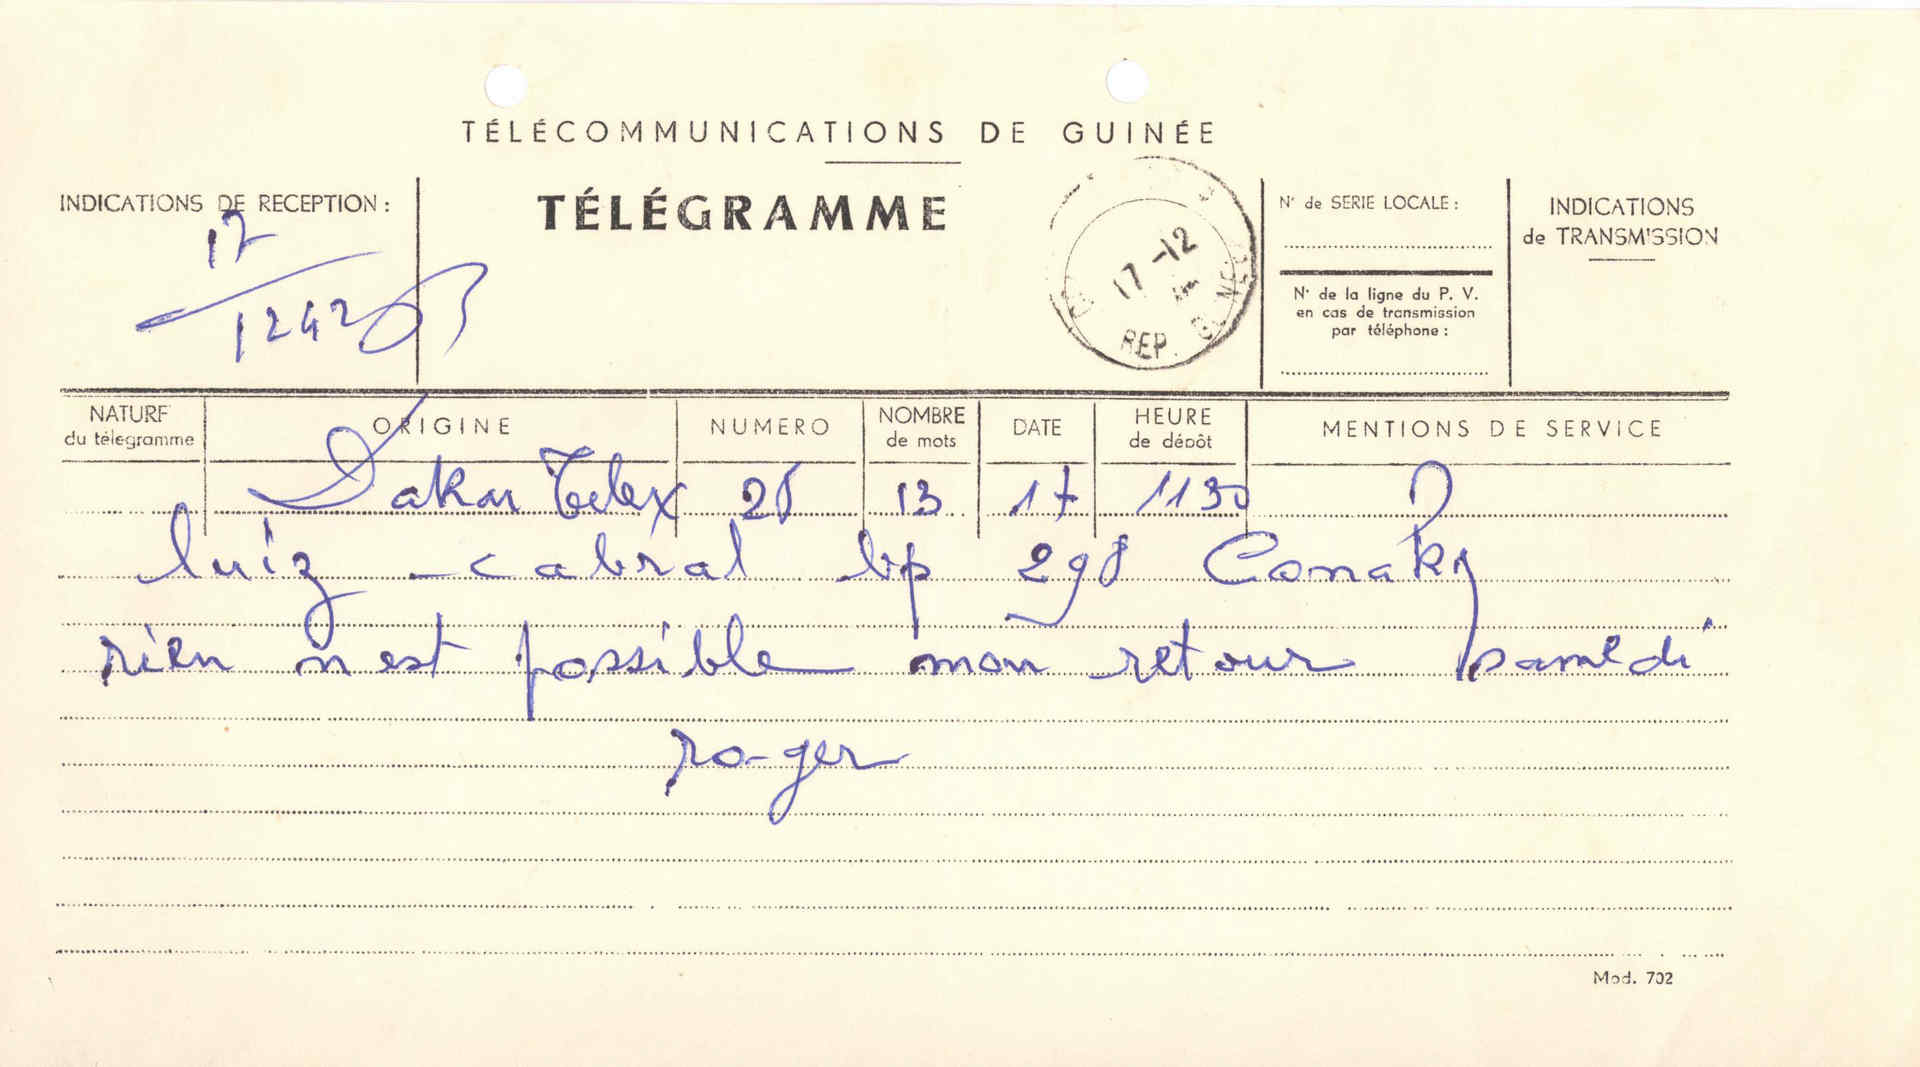 TÉLÉCOMMUNICATIONS DE GUINÉE
TÉLÉGRAMME
INDICATIONS DE RECEPTION :
17
1242
17-12
REP. GUINEE
N° de SERIE LOCALE :
N° de la ligne du P. V.
en cas de transmission
par téléphone :
INDICATIONS
de TRANSMISSION
NATURE
du télegramme
ORIGINE
NUMERO
NOMBRE
de mots
DATE
HEURE
de dépôt
MENTIONS DE SERVICE
Dakar Telex 28 13 17 1130
luiz - cabral bp 298 Conakry
rien n est possible mon retour samedi
roger
Mod. 702